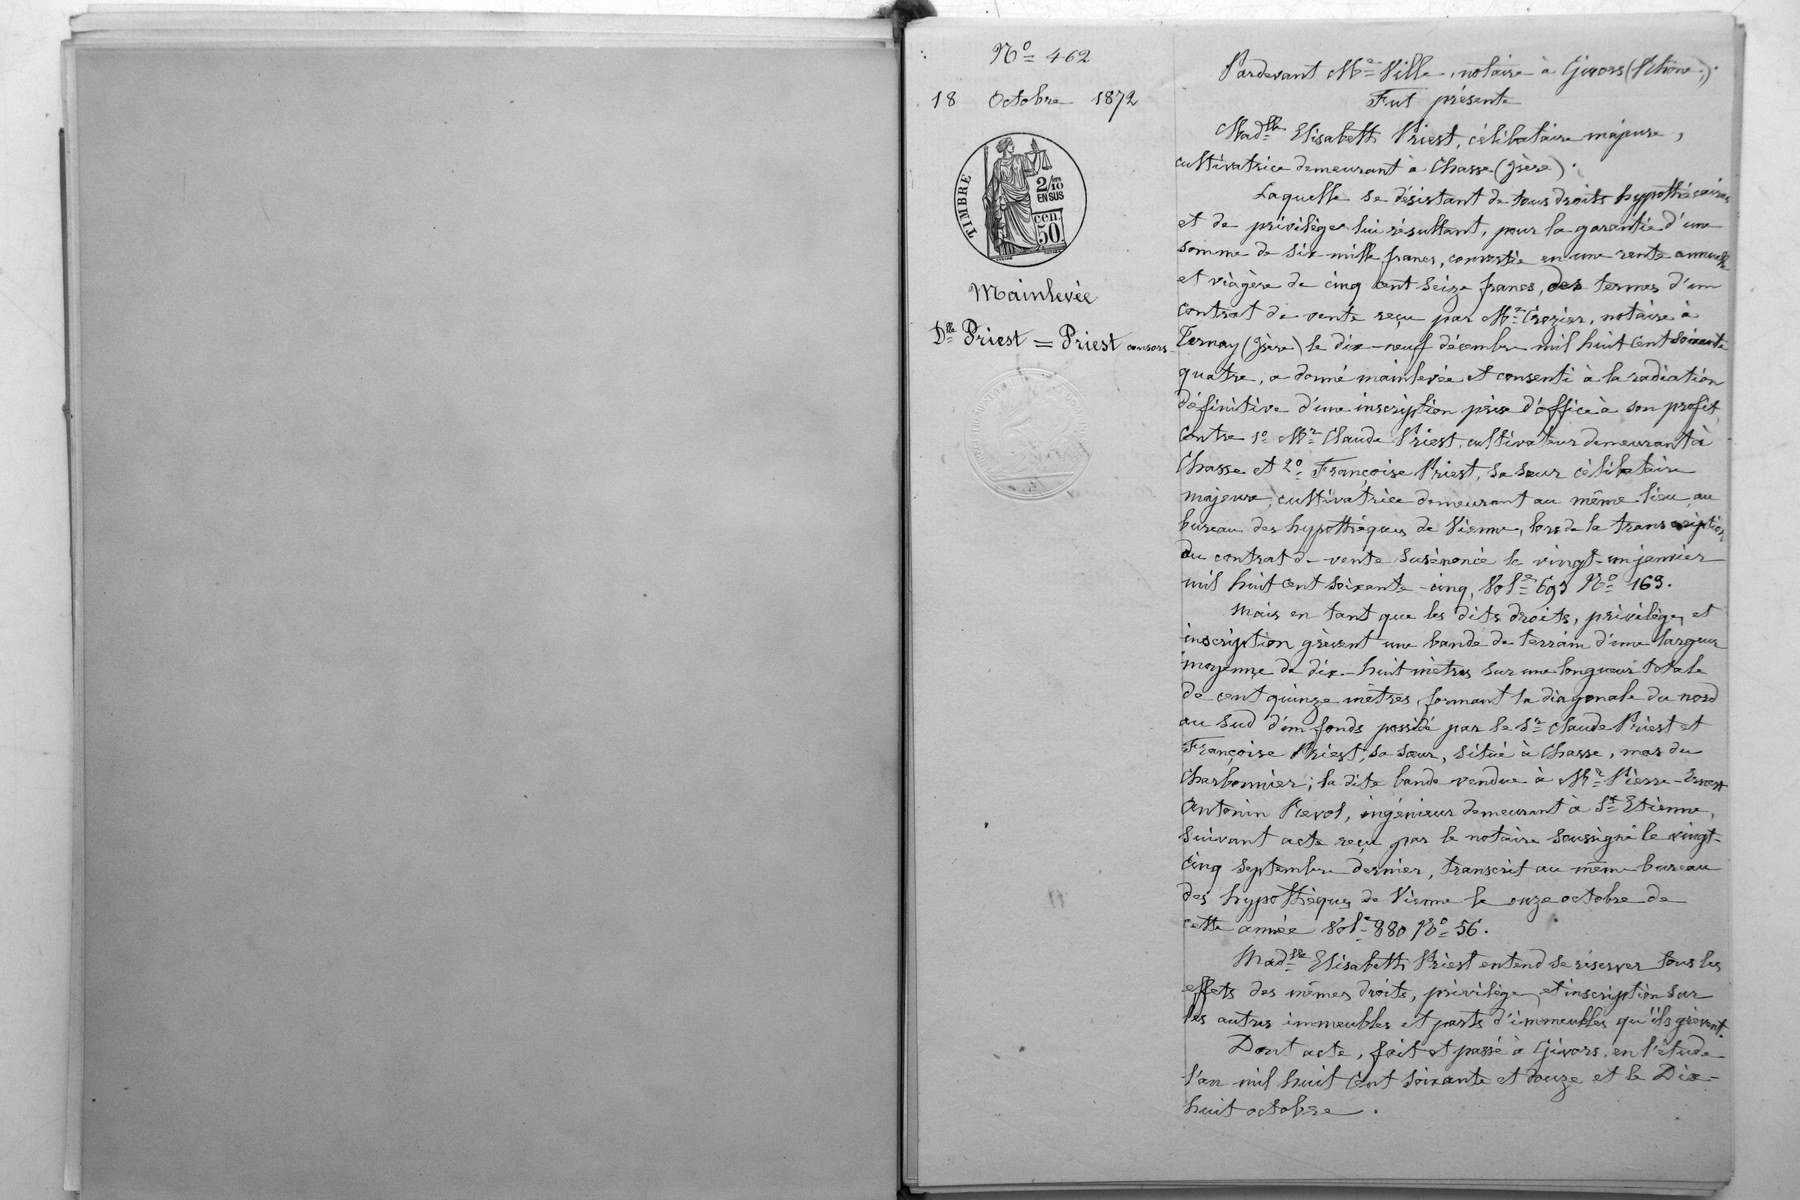 No 462
18 Octobre 1872
TIMBRE
2/10 EN SUS
cen. 50
Mainlevée
Dlle Priest = Priest consors
Pardevant Me Ville, notaire à Givors (Rhône).
Fut présente
Madlle Elisabeth Priest, célibataire majeure,
cultivatrice demeurant à Chasse (Isère).
Laquelle se désistant de tous droits hypothécaires
et de privilèges lui résultant, pour la garantie d'une
somme de six mille francs, convertie en une rente annuelle
et viagère de cinq cent seize francs, des termes d'un
contrat de vente reçu par Me Crozier, notaire à
Ternay (Isère) le dix-neuf décembre mil huit cent soixante
quatre, a donné mainlevée et consenti à la radiation
définitive d'une inscription prise d'office à son profit
contre 1o Mr Claude Priest, cultivateur demeurant à
Chasse et 2o Françoise Priest, sa sœur célibataire
majeure, cultivatrice demeurant au même lieu, au
bureau des hypothèques de Vienne, lors de la transcription
du contrat de vente susénoncé le vingt-un janvier
mil huit cent soixante-cinq, Vole 693 No 163.
Mais en tant que les dits droits, privilège, et
inscription grèvent une bande de terrain d'une largeur
moyenne de dix-huit mètres sur une longueur totale
de cent quinze mètres, formant la diagonale du nord
au sud d'un fonds possédé par le Sr Claude Priest et
Françoise Priest, sa sœur, situé à Chasse, mas du
Charbonnier; la dite bande vendue à Mr Pierre-Ernest
Antonin Revol, ingénieur demeurant à St Etienne,
suivant acte reçu par le notaire soussigné le vingt-
cinq septembre dernier, transcrit au même bureau
des hypothèques de Vienne le onze octobre de
cette année Vole 880 No 56.
Madlle Elisabeth Priest entend se réserver tous les
effets des mêmes droits, privilège, et inscription sur
les autres immeubles et parts d'immeubles qu'ils grèvent.
Dont acte, fait et passé à Givors, en l'étude
l'an mil huit cent soixante et douze et le Dix-
huit octobre.